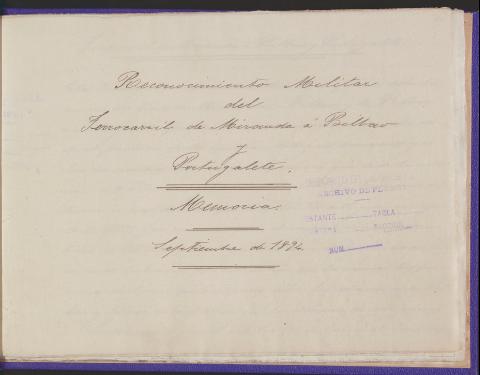 Reconocimiento Militar
del
Ferrocarril de Miranda á Bilbao
y
Portugalete.
Memoria.
Septiembre de 1894
ARCHIVO DE
ESTANTE TABLA
NUM